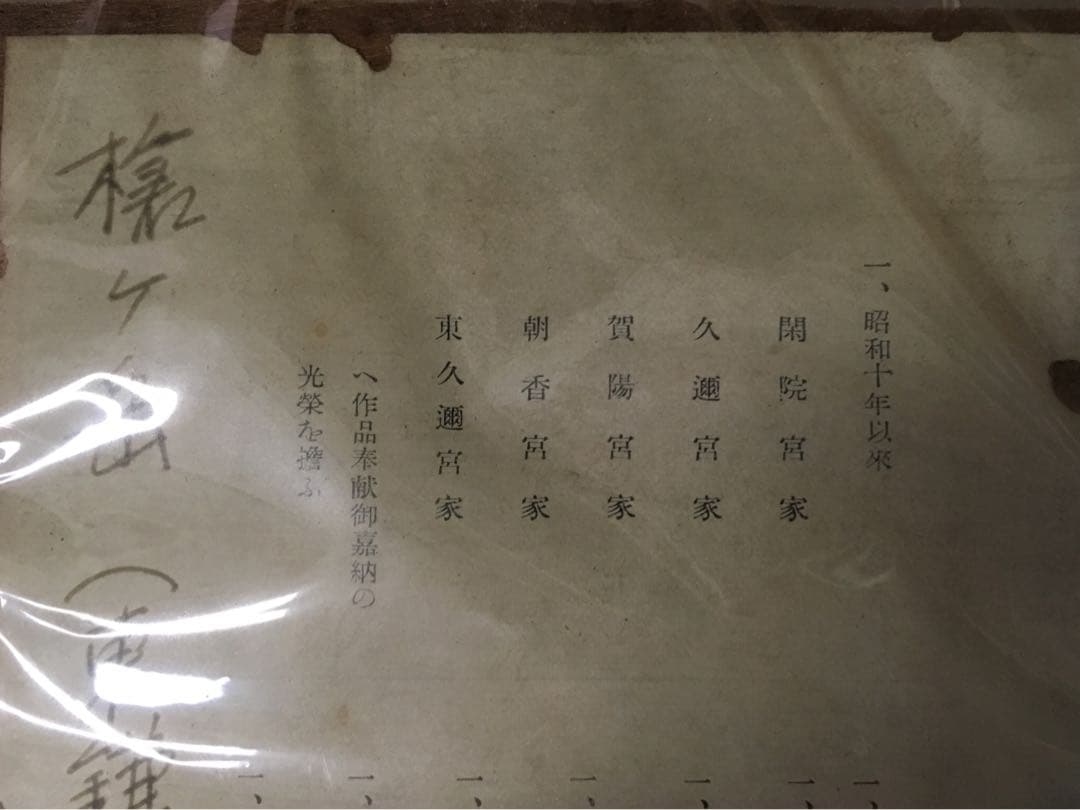 一、昭和十年以來
閑院宮家
久邇宮家
賀陽宮家
朝香宮家
東久邇宮家
へ作品奉献御嘉納の
光榮を擔ふ
一、
一、
一、
一、
一、
一、
一、
槍ケ